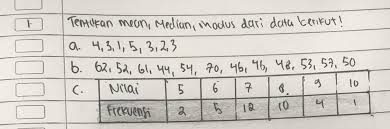 1 Tentukan mean, Median, modus dari data berikut!
a. 4,3,1,5,3,2,3
b. 62, 52, 61, 44, 54, 70, 46, 46, 48, 53, 57, 50
c. Nilai 5 6 7 8 9 10
Frekuensi 2 5 12 10 4 1